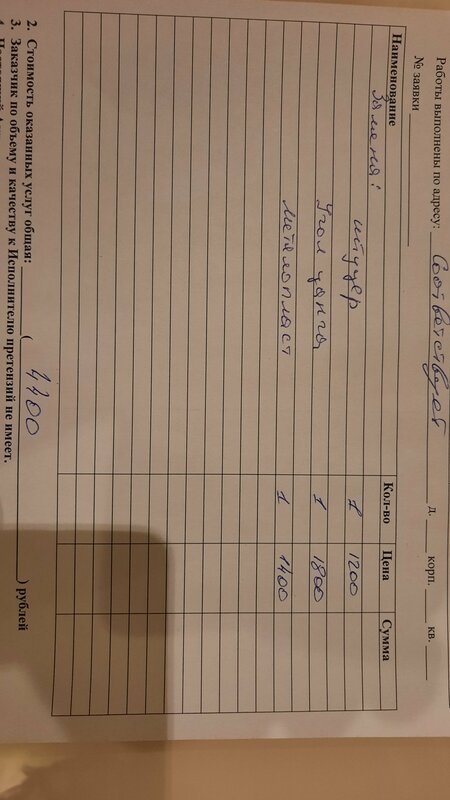 Работы выполнены по адресу: Соответствует д. ____ корп. ____ кв. ____
№ заявки
Наименование Кол-во Цена Сумма
Замена:
штуцер 1 1200
Угол цанга 1 1800
Металопласт 1 1400
2. Стоимость оказанных услуг общая: ____ ( 4400 ) рублей
3. Заказчик по объему и качеству к Исполнителю претензий не имеет.